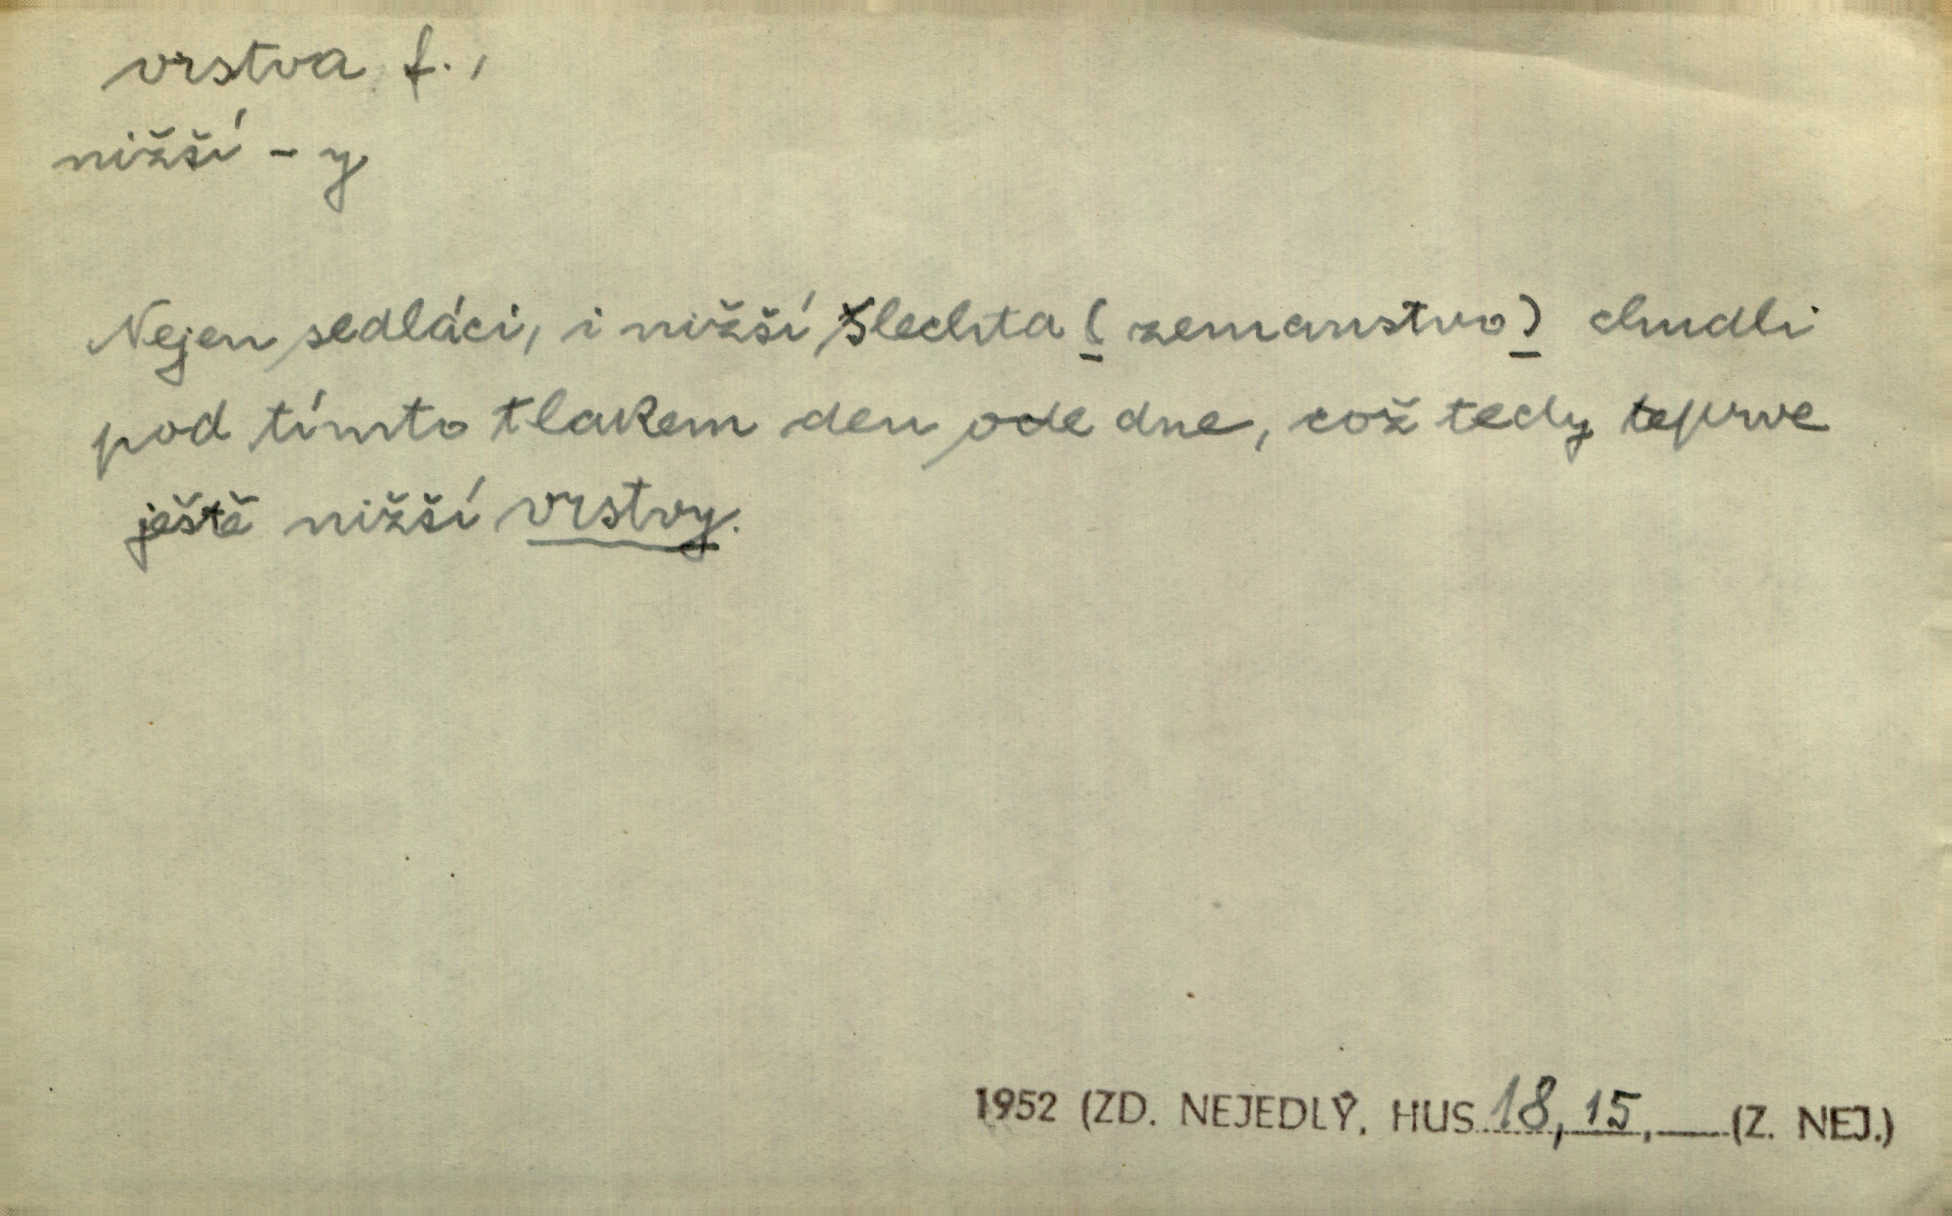 vrstva f.,
nižší - y
Nejen sedláci, i nižší šlechta (zemanstvo) chudli
pod tímto tlakem den ode dne, což tedy teprve
ještě nižší vrstvy.
1952 (ZD. NEJEDLÝ, HUS 18, 15, — (Z. NEJ.)